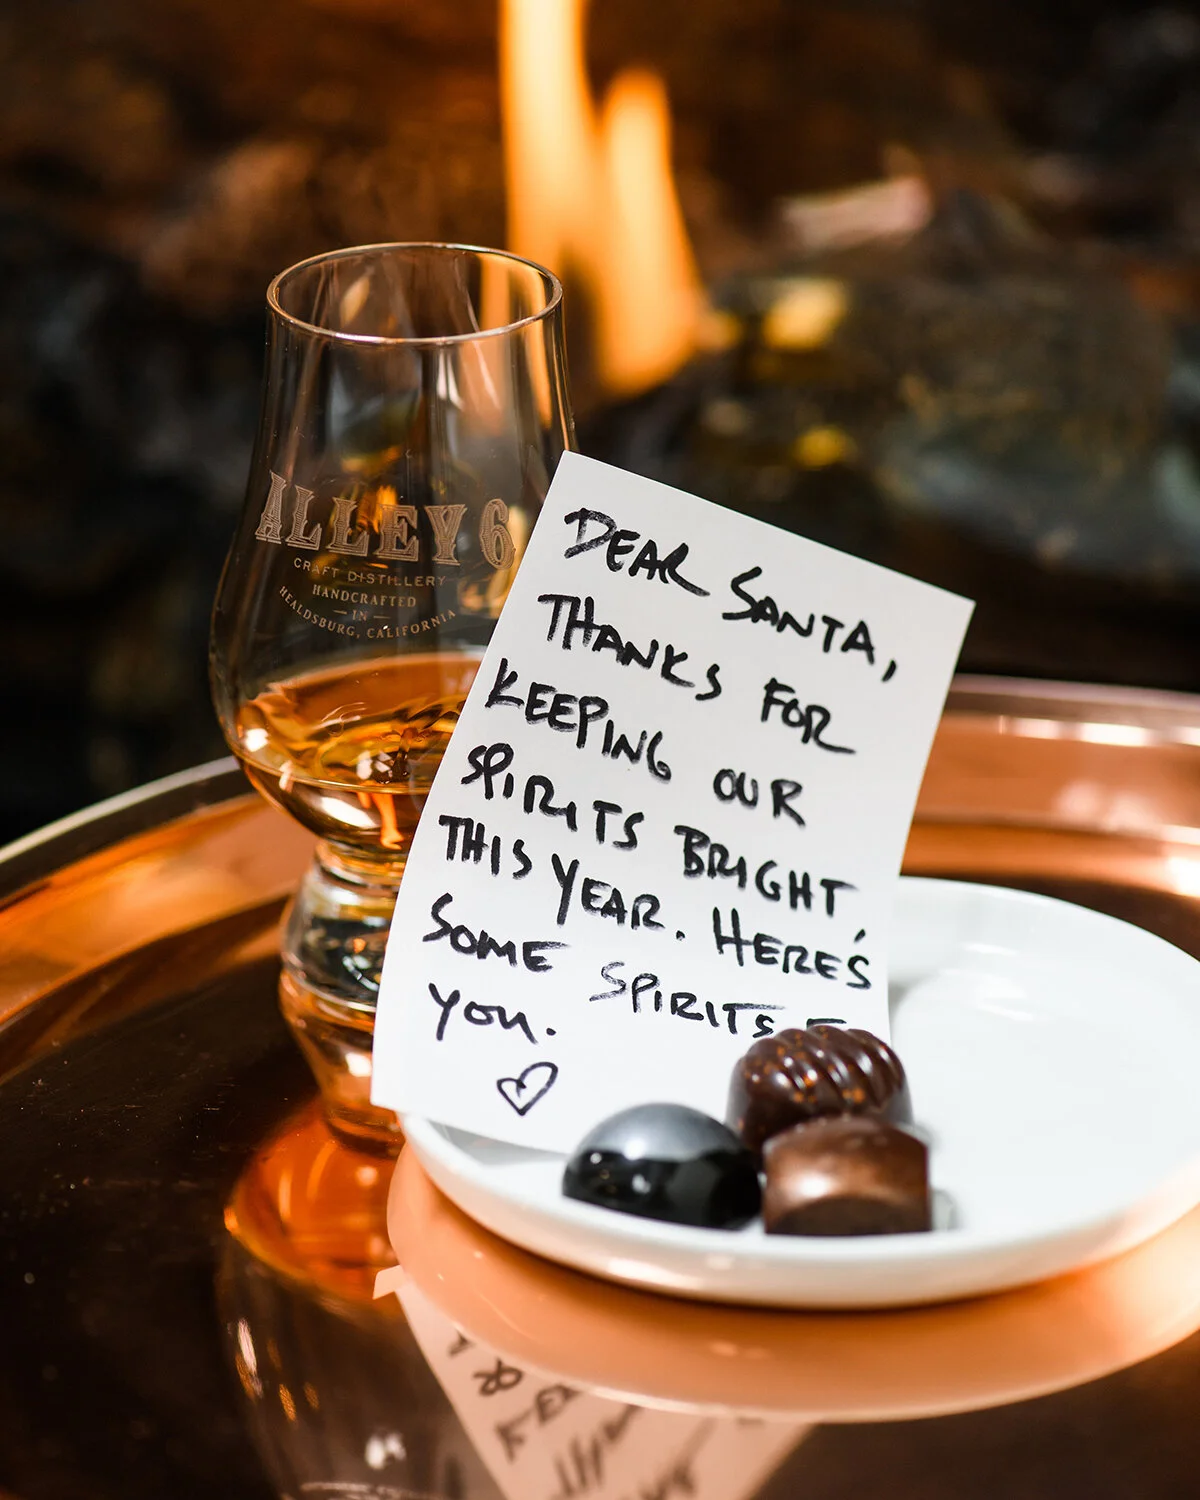 ALLEY 6
CRAFT DISTILLERY
HANDCRAFTED
IN
HEALDSBURG, CALIFORNIA
DEAR SANTA,
THANKS FOR
KEEPING OUR
SPIRITS BRIGHT
THIS YEAR. HERE'S
SOME SPIRITS
YOU.